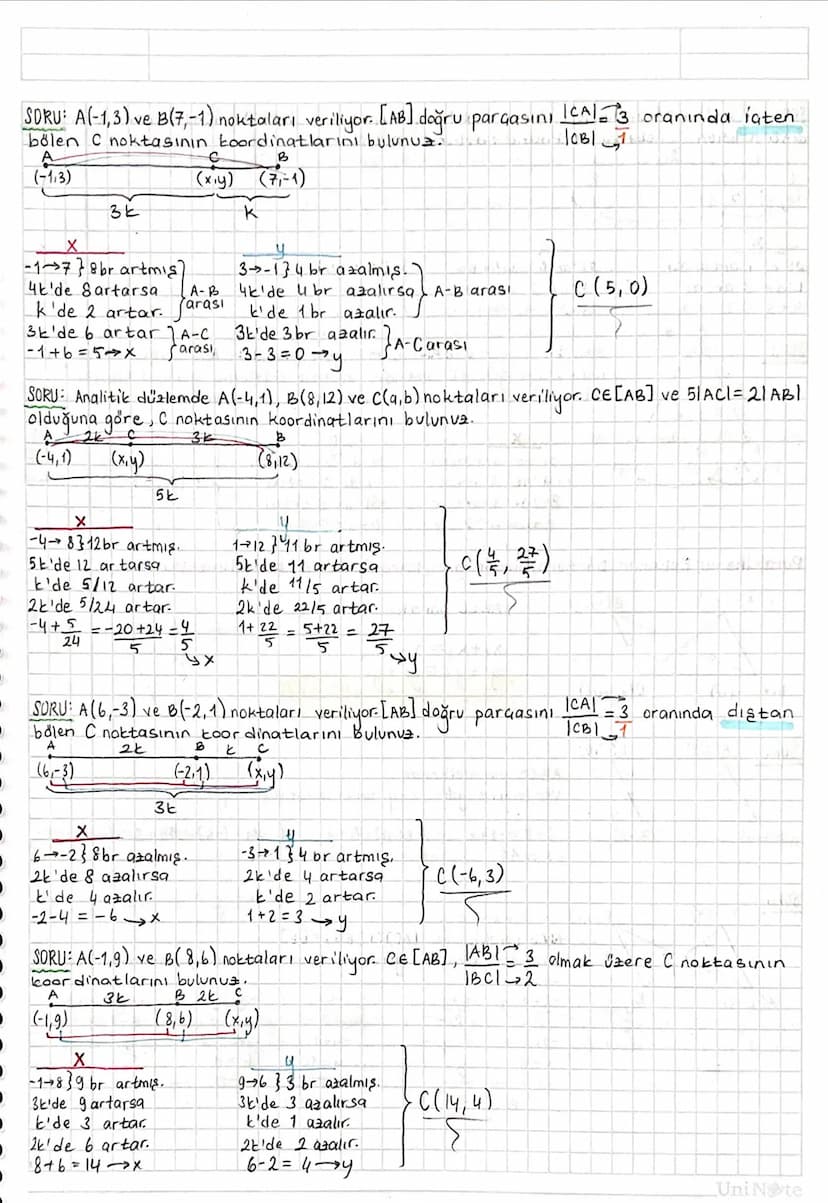 SORU: A(-1,3) ve B(7,-1) noktaları veriliyor. [AB] doğru parçasını |CA|/|CB| = 3/1 oranında içten
bölen C noktasının koordinatlarını bulunuz.
A C B
(-1,3) (x,y) (7,-1)
3k k
x
-1→7 } 8br artmış
4k'de 8 artarsa
k'de 2 artar.
A-B arası
3k'de 6 artar
-1+6=5→x
A-C arası
y
3→-1 } 4 br azalmış.
4k'de 4br azalırsa
k'de 1br azalır.
A-B arası
3k'de 3br azalır.
3-3=0→y
A-C arası
C(5,0)
SORU: Analitik düzlemde A(-4,1), B(8,12) ve C(a,b) noktaları veriliyor. C∈[AB] ve 5|AC|=2|AB|
olduğuna göre, C noktasının koordinatlarını bulunuz.
A 2k C 3k B
(-4,1) (x,y) (8,12)
5k
x
-4→8 } 12br artmış.
5k'de 12 artarsa
k'de 5/12 artar.
2k'de 5/24 artar.
-4+5/24 = -20+24/5 = 4/5
→x
y
1→12 } 11 br artmış.
5k'de 11 artarsa
k'de 11/5 artar.
2k'de 22/5 artar.
1+22/5 = 5+22/5 = 27/5
→y
C(4/5, 27/5)
SORU: A(6,-3) ve B(-2,1) noktaları veriliyor. [AB] doğru parçasını |CA|/|CB| = 3/1 oranında dıştan
bölen C noktasının koordinatlarını bulunuz.
A 2k B k C
(6,-3) (-2,1) (x,y)
3k
x
6→-2 } 8br azalmış.
2k'de 8 azalırsa
k'de 4 azalır.
-2-4=-6→x
y
-3→1 } 4 br artmış.
2k'de 4 artarsa
k'de 2 artar.
1+2=3→y
C(-6,3)
SORU: A(-1,9) ve B(8,6) noktaları veriliyor. C∈[AB], |AB|/|BC| = 3/2 olmak üzere C noktasının
koordinatlarını bulunuz.
A 3k B 2k C
(-1,9) (8,6) (x,y)
x
-1→8 } 9 br artmış.
3k'de 9 artarsa
k'de 3 artar.
2k'de 6 artar.
8+6=14→x
y
9→6 } 3 br azalmış.
3k'de 3 azalırsa
k'de 1 azalır.
2k'de 2 azalır.
6-2=4→y
C(14,4)
UniNote